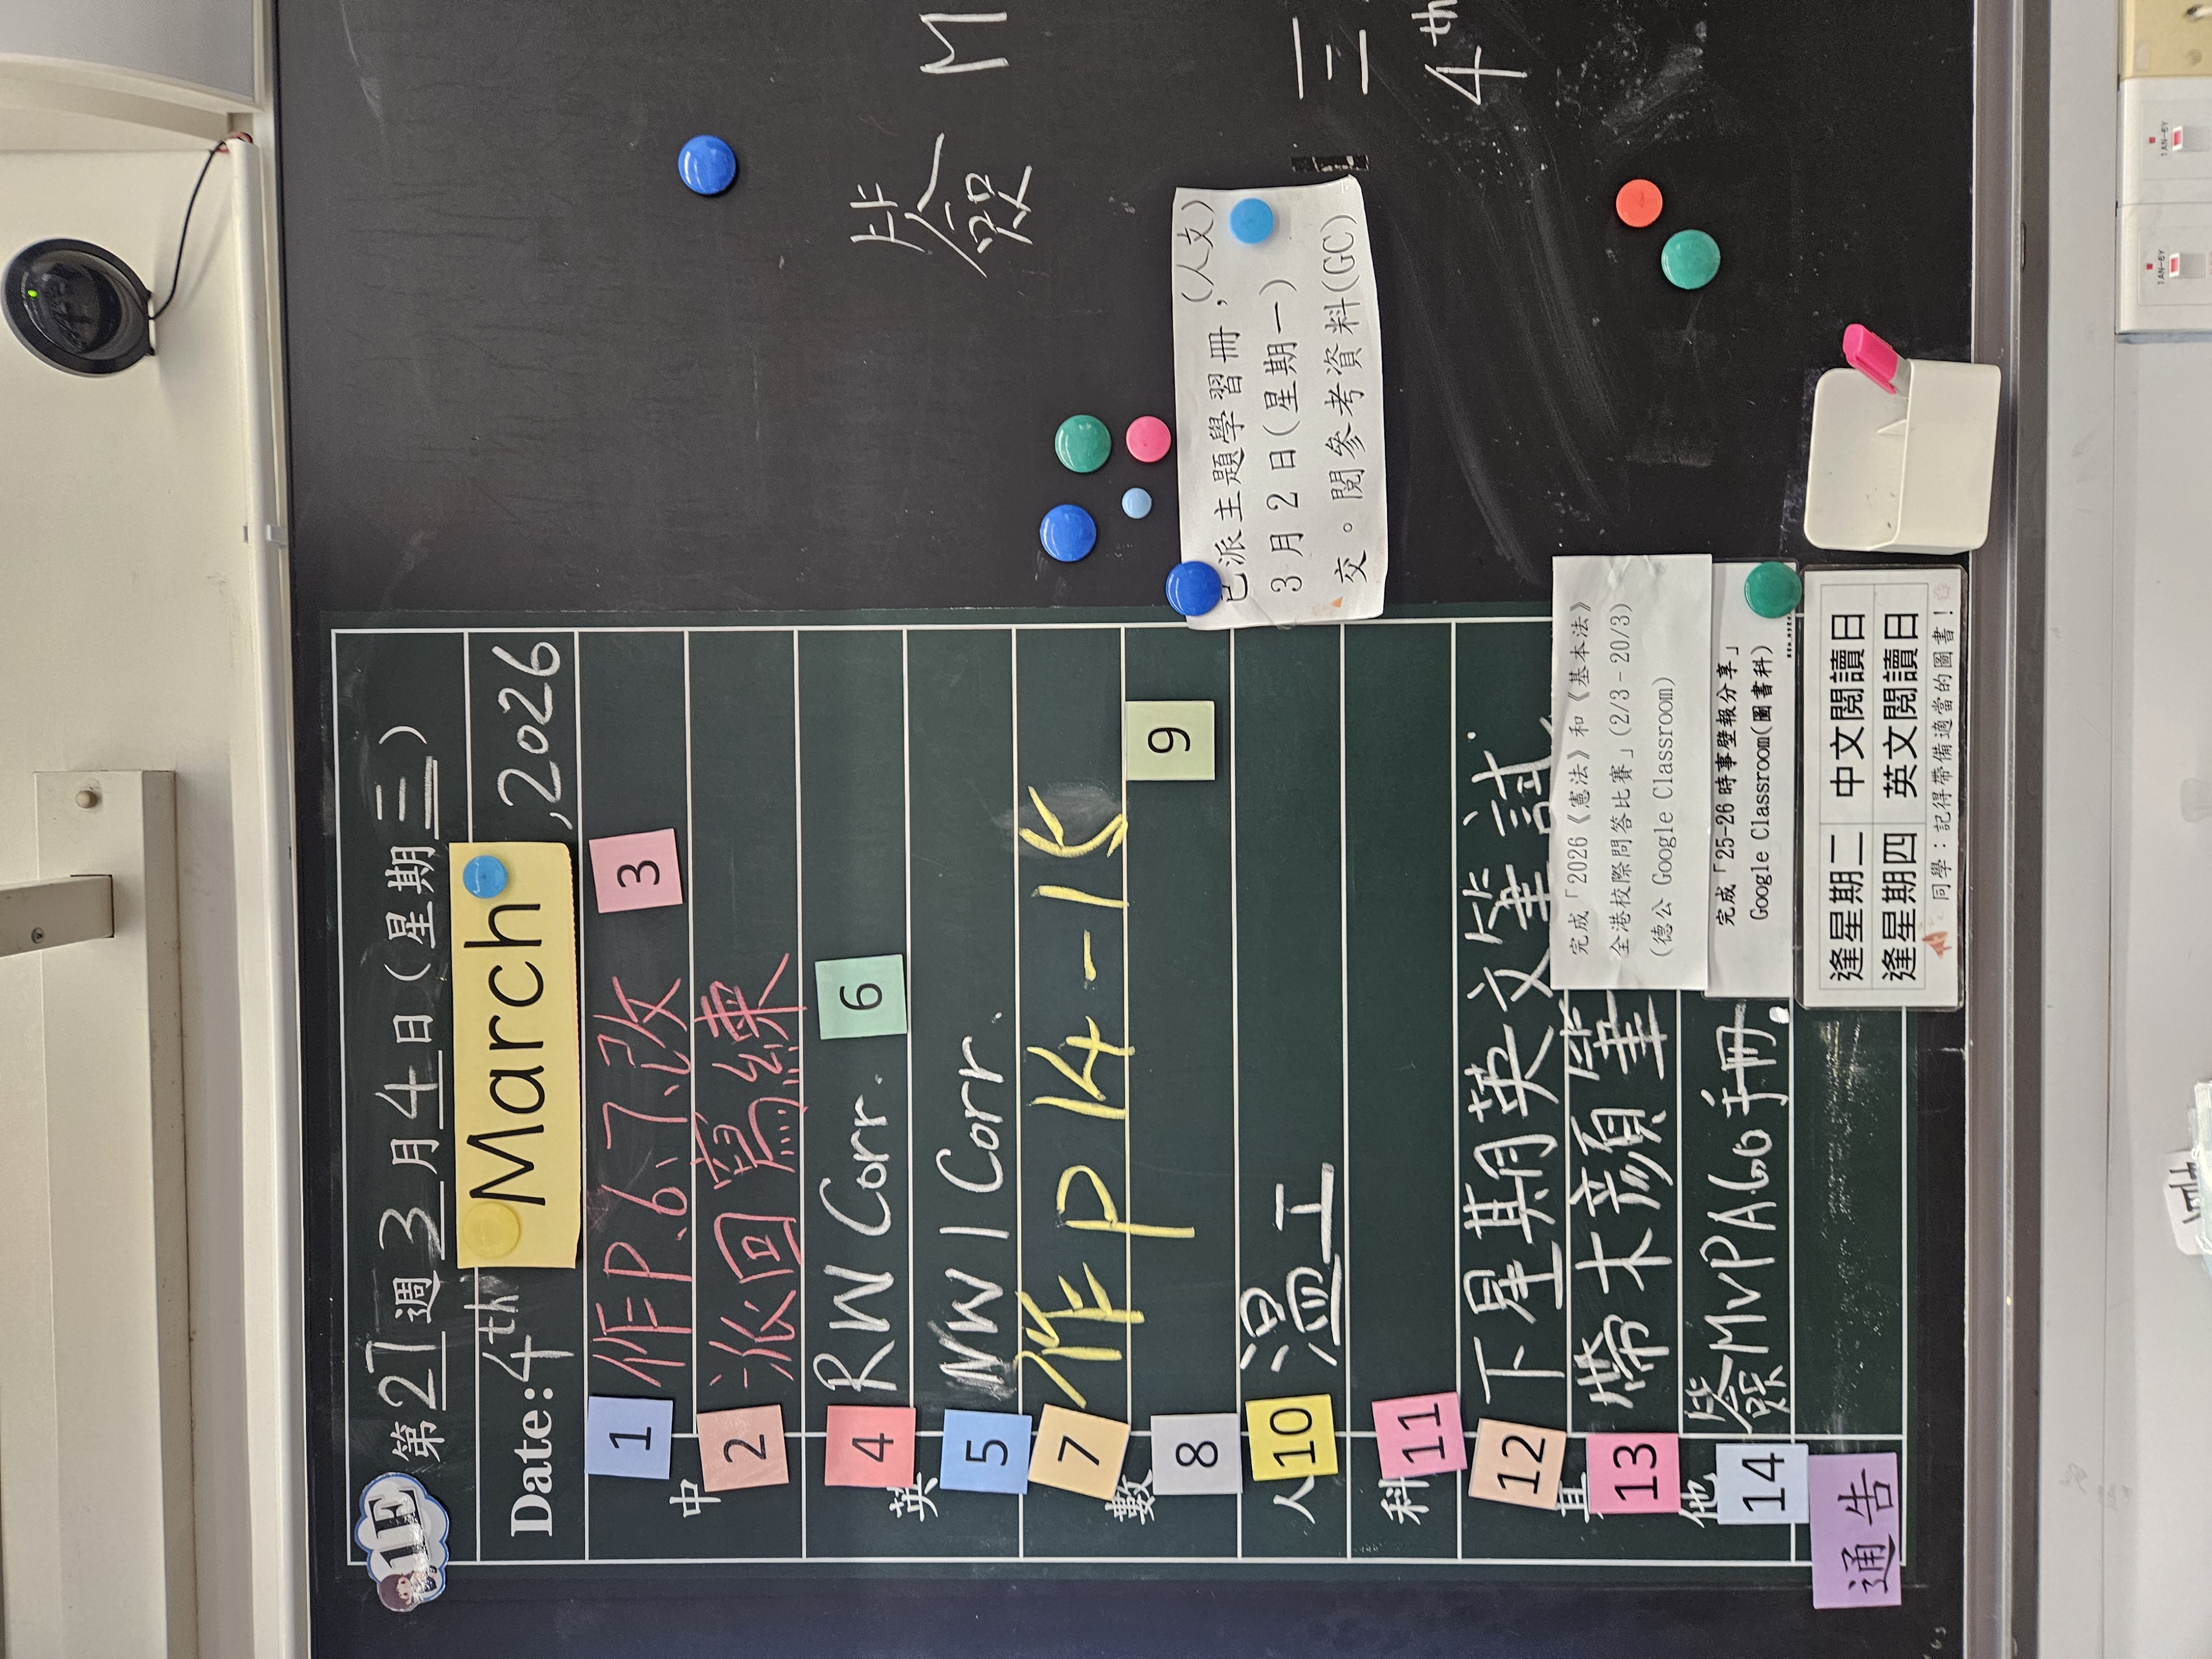 1E
第27週3月4日(星期三)
Date:4th March,2026
中
1 作P.6、7改
3
2 派回寫練
英
4 RW Corr.
6
5 NW1 Corr.
數
7 作P14-18
8
9
人
10 溫工
科
11
其他
12 下星期英文筆試
13 帶木顏筆
14 簽MVPA60手冊
通告
已派主題學習冊,(人文)
3月2日(星期一)
交。閱參考資料(GC)
完成「2026《憲法》和《基本法》
全港校際問答比賽」(2/3-20/3)
(德公 Google Classroom)
完成「25-26時事壁報分享」
Google Classroom(圖書科)
逢星期二 中文閱讀日
逢星期四 英文閱讀日
同學:記得帶備適當的圖書!
M
三
4th
1AN-6Y
1AN-6Y